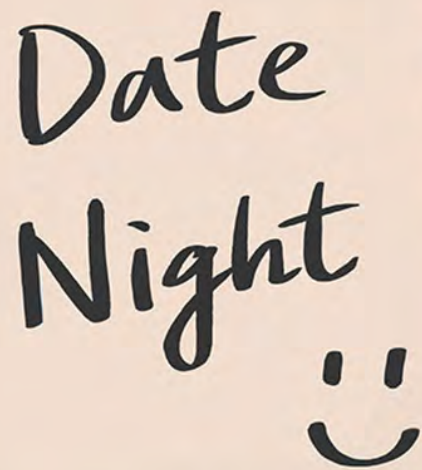 Date
Night